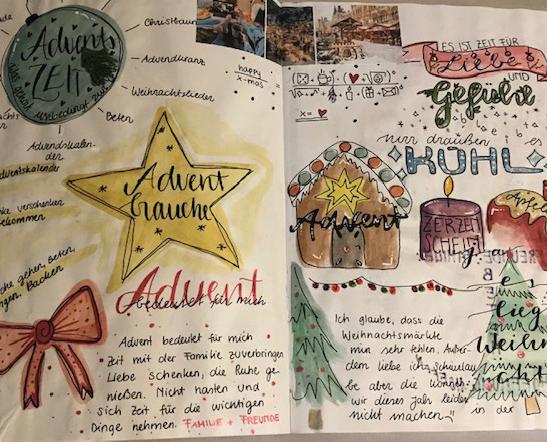 Christbaum
Advents
ZEIT
Adventskranz
Weihnachtslieder
Beten
Adventskalen-
der
Adventskalender
verschenken
bekommen
gehen, Beten,
Backen
happy
x-mas
Advent
bräuche
Advent
bedeutet für mich
Advent bedeutet für mich
Zeit mit der Familie zuverbringen
Liebe schenken, die Ruhe ge-
nießen. Nicht hasten und
sich Zeit für die wichtigen
Dinge nehmen. FAMILIE + FREUNDE
ES IST ZEIT FÜR
Liebe
UND
Gefühle
x =
nur draußen
KÜHL
Advent
Apfel
Ich glaube, dass die
Weihnachtsmärkte
mir sehr fehlen. Außer-
dem liebe ich
be aber die können
wir dieses Jahr leider
nicht machen
es
lieg
Weihn
in der